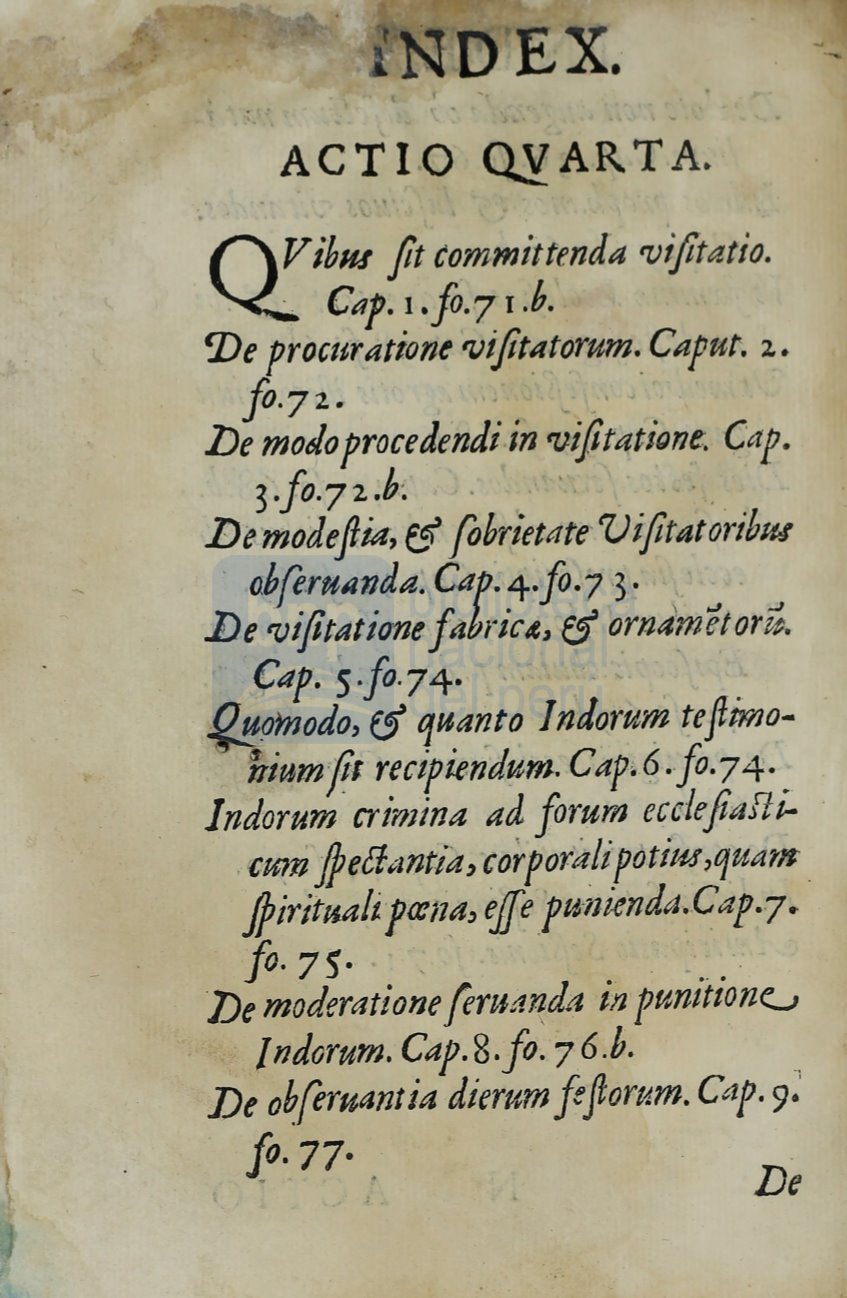 INDEX.
ACTIO QVARTA.
QVibus ſit committenda viſitatio.
Cap. 1. fo.71.b.
De procuratione viſitatorum. Caput. 2.
fo.72.
De modo procedendi in viſitatione. Cap.
3.fo.72.b.
De modeſtia, & ſobrietate Viſitatoribus
obſeruanda. Cap. 4.fo.73.
De viſitatione fabricæ, & ornamẽtorũ.
Cap. 5.fo.74.
Quomodo, & quanto Indorum teſtimo-
nium ſit recipiendum. Cap.6.fo.74.
Indorum crimina ad forum eccleſiaſti-
cum ſpectantia, corporali potius, quam
ſpirituali pœna, eſſe punienda. Cap.7.
fo. 75.
De moderatione ſeruanda in punitione
Indorum. Cap.8.fo. 76.b.
De obſeruantia dierum feſtorum. Cap. 9.
fo. 77.
De